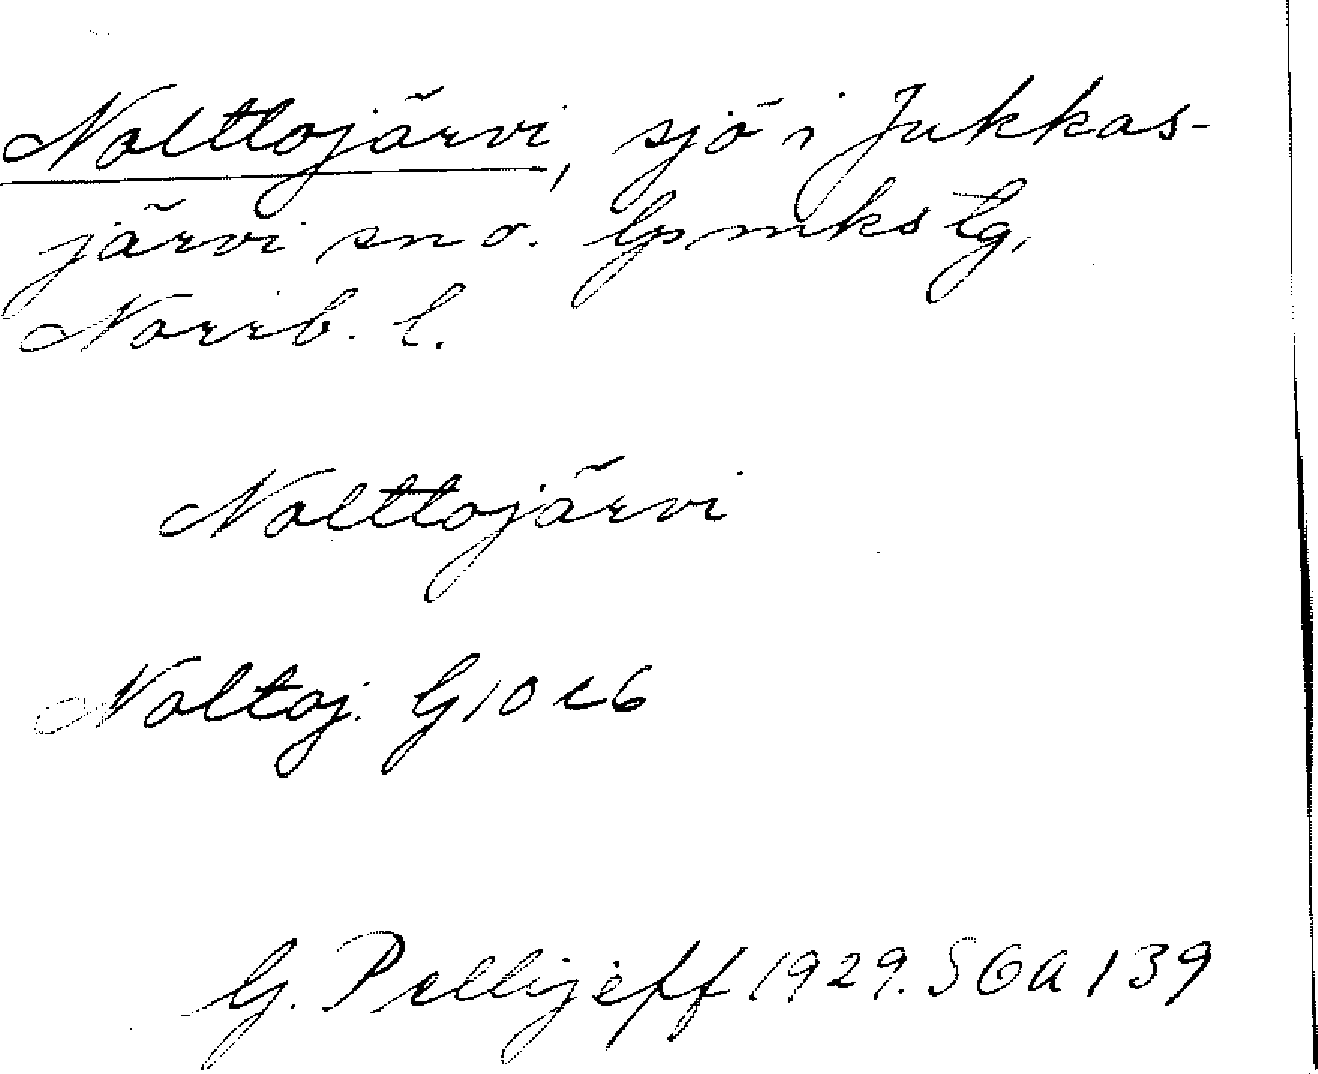 Nolttojärvi, sjö i Jukkas-
järvi sn o. lpmks tg,
Norrb. l.
Nolttojärvi
Noltoj. G10 c6
G. Pellijeff 1929. SOA 139